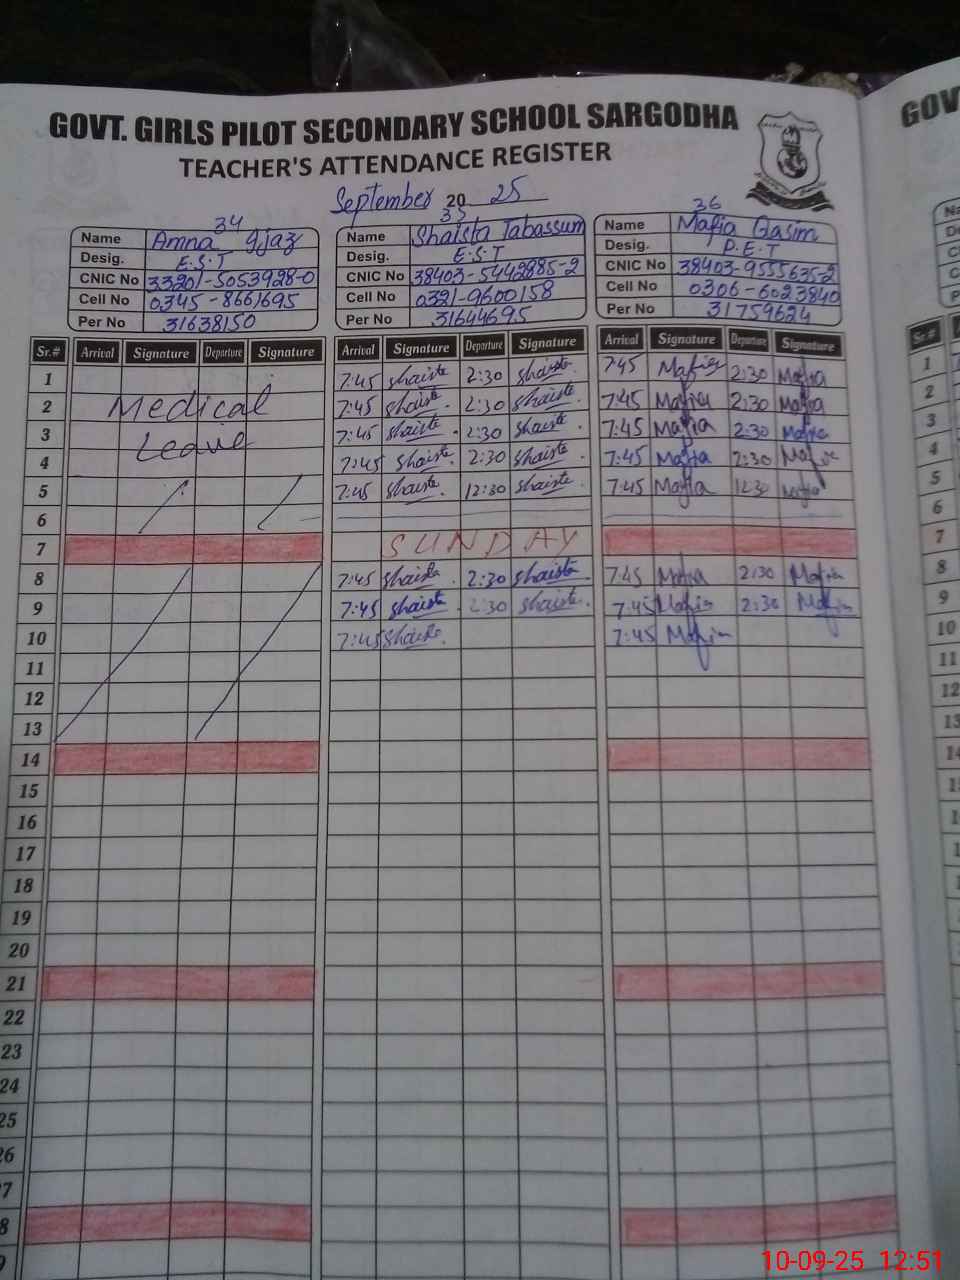 GOVT. GIRLS PILOT SECONDARY SCHOOL SARGODHA
TEACHER'S ATTENDANCE REGISTER
September 20 25
34 35 36
Name Amna Ijaz Name Shaista Tabassum Name Mafia Qasim
Desig. E.S.T Desig. E.S.T Desig. P.E.T
CNIC No 33201-5053928-0 CNIC No 38403-5442885-2 CNIC No 38403-9555635-2
Cell No 0345-8661695 Cell No 0321-9600158 Cell No 0306-6023840
Per No 31638150 Per No 31644695 Per No 31759624
Sr.# Arrival Signature Departure Signature Arrival Signature Departure Signature Arrival Signature Departure Signature
1 7:45 Shaista 2:30 Shaista 745 Mafia 2:30 Mafia
2 Medical 7:45 Shaista 2:30 Shaista 7:45 Mafia 2:30 Mafia
3 Leave 7:45 Shaista 2:30 Shaista 7:45 Mafia 2:30 Mafia
4 7:45 Shaista 2:30 Shaista 7:45 Mafia 2:30 Mafia
5 7:45 Shaista 12:30 Shaista 7:45 Mafia 1230 Mafia
6
7 SUNDAY
8 7:45 Shaista 2:30 Shaista 7:45 Mafia 2:30 Mafia
9 7:45 Shaista 2:30 Shaista 7:45 Mafia 2:30 Mafia
10 7:45 Shaista 7:45 Mafia
11
12
13
14
15
16
17
18
19
20
21
22
23
24
25
26
7
8
9
GOV
1
2
3
4
5
6
7
8
9
10
11
12
13
14
10-09-25 12:51